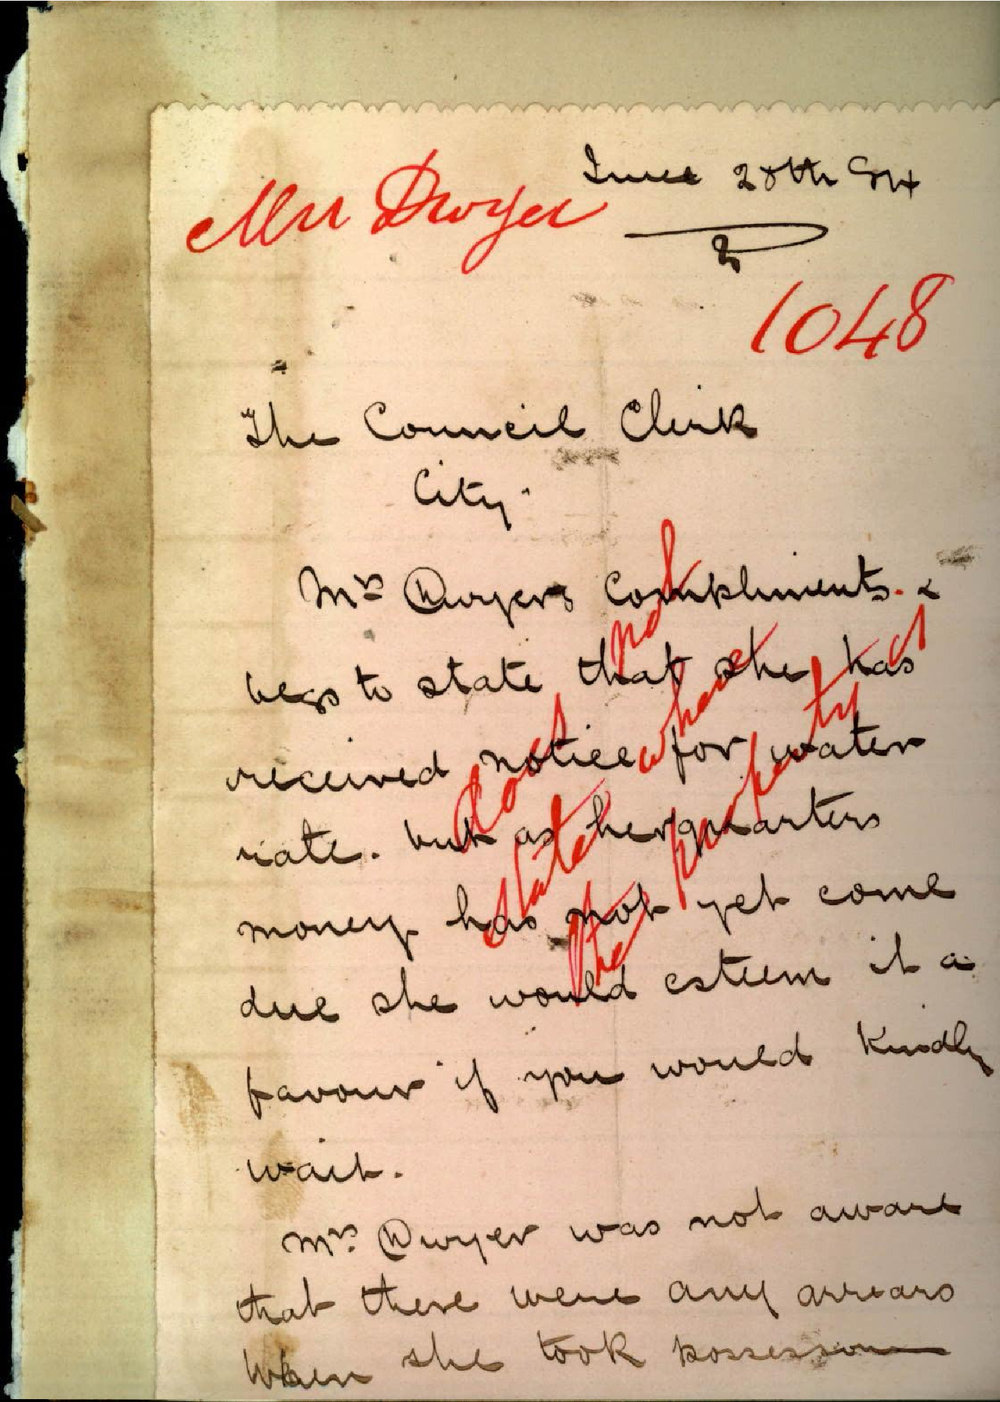 Mrs Dwyer
June 28th 94
1048
The Council Clerk
City.
Mrs Dwyers compliments. &
begs to state that she has
received notice for water
rate. but as her quarters
money has not yet come
due she would esteem it a
favour if you would Kindly
wait.
Mrs. Dwyer was not aware
that there were any arrears
When she took possession
does not
state where
the property is